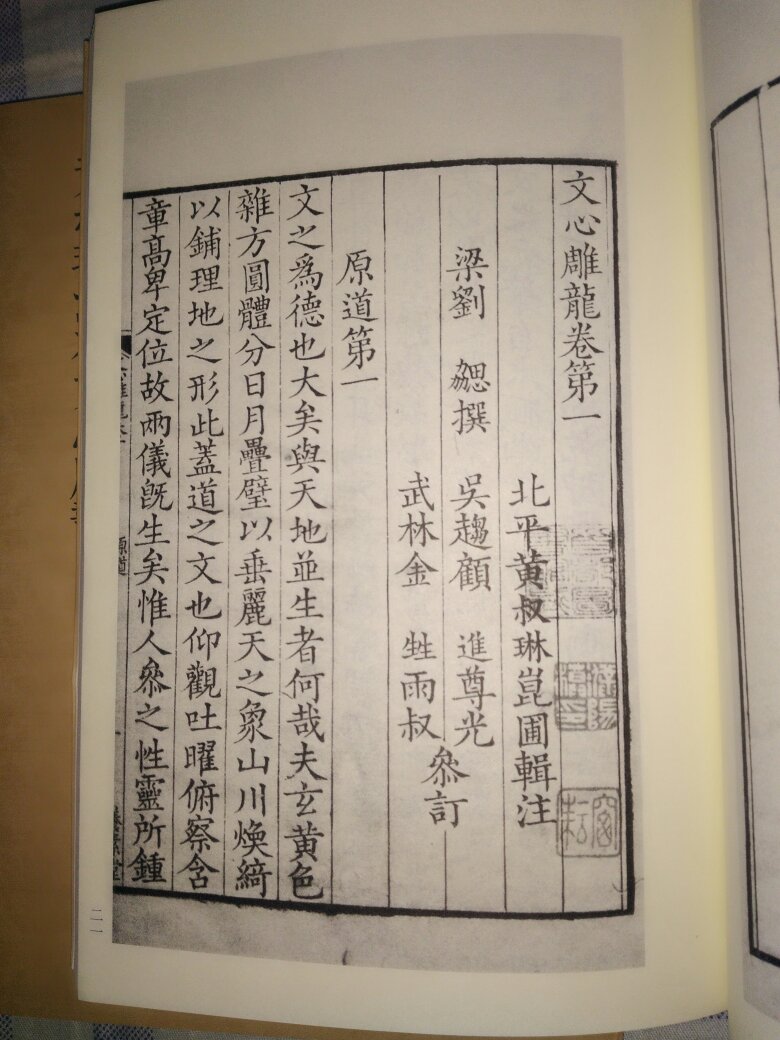 文心雕龍卷第一
北平黄叔琳崑圃輯注
梁劉 勰撰 吳趨顧 進尊光
武林金 甡雨叔
叅訂
原道第一
文之爲德也大矣與天地並生者何哉夫玄黄色
雜方圓體分日月疊璧以垂麗天之象山川煥綺
以鋪理地之形此蓋道之文也仰觀吐曜俯察含
章高卑定位故兩儀旣生矣惟人叅之性靈所鍾
原道
一
養素堂
二一